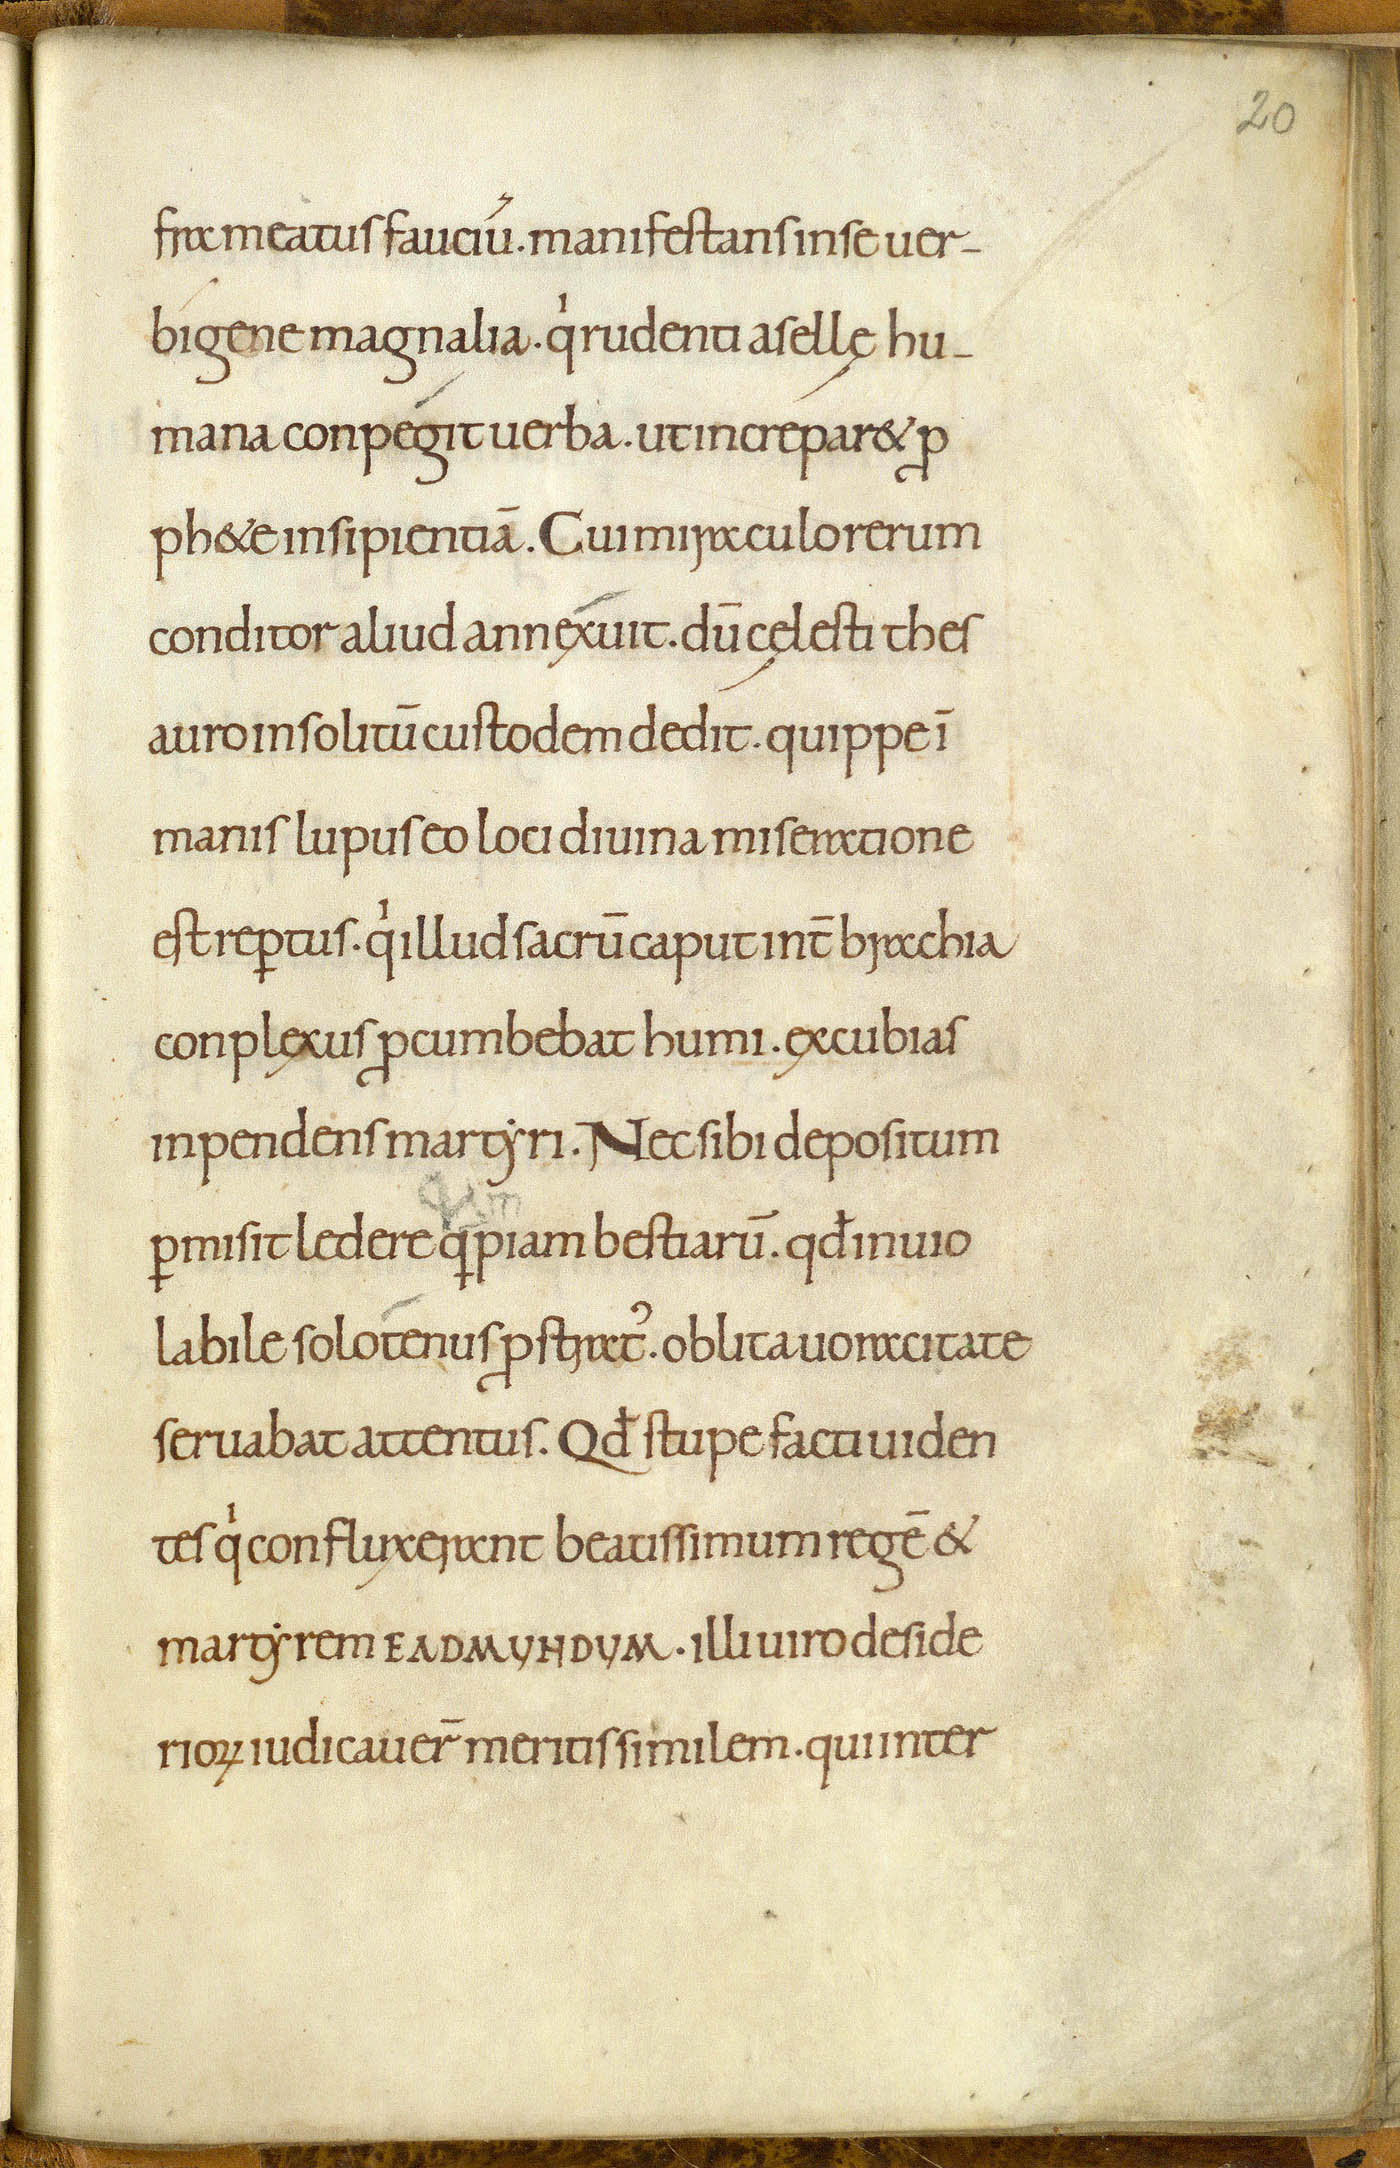 20
fra meatus fauciū. manifestans in se uer-
bigene magnalia. qͥ rudenti asellę hu-
mana conpegit uerba. ut increpar& ꝓ
ph&e insipientiā. Cui miraculo rerum
conditor aliud annexuit. dū cęlesti thes
auro insolitū custodem dedit. quippe ī
manis lupus eo loci diuina miseratione
est reꝑtus. qͥ illud sacrū caput int̄ brachia
conplexus ꝓcumbebat humi. excubias
inpendens martẏri. Nec sibi depositum
ꝑmisit ledere q̄piam bestiarū. qđ inuio
labile solotenus ꝓstratꝰ. oblita uoracitate
seruabat attentus. Qđ stupefacti uiden
tes qͥ confluxerant beatissimum regē &
martẏrem EADMUNDUM. illi uiro deside
rioꝝ iudicauer̄ meritis similem. qui inter